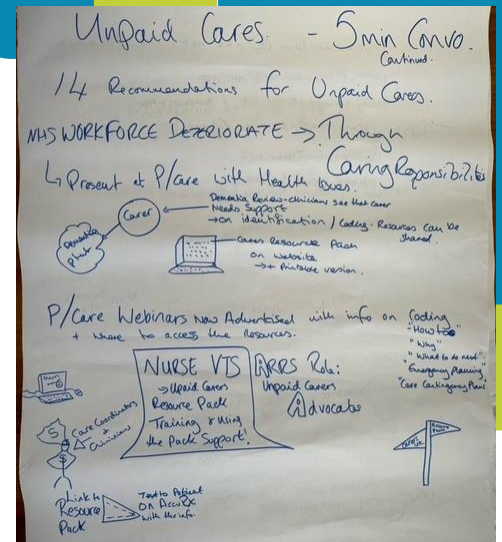 Unpaid Cares. - 5 min Convo.
Continued.
14 Recommendations for Unpaid Carers.
NHS WORKFORCE DETERIORATE → Through
Caring Responsibilities
↳ Present at P/care with Health Issues.
Dementia Review - clinicians see that carer
Needs Support
→ on identification / Coding - Resources can be
shared.
Carer
Dementia
Carers Resource Pack
on website
→ + Printable version.
P/Care Webinars now Advertised with info on Coding
+ where to access the Resources.
"How to"
"Why"
"What to do next"
"Emergency Planning"
"Care Contingency Plans"
NURSE VTS
→ Upaid Carers
Resource Pack
Training & Using
the Pack Support!
ARRS Role:
Unpaid Carers
Advocate
Care Coordinators
+ Clinicians
Link to
Resource
Pack
Text to Patient
on AccuRx
with the info.